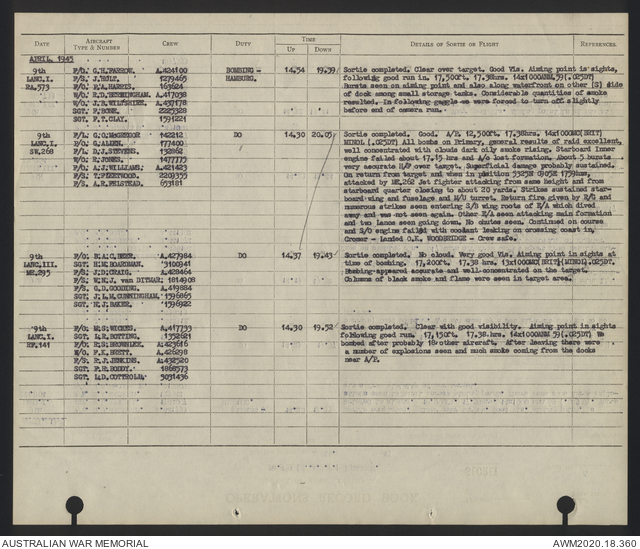 DATE AIRCRAFT TYPE & NUMBER CREW DUTY TIME UP DOWN DETAILS OF SORTIE OR FLIGHT REFERENCES.
APRIL, 1945
9th F/O. G.H. FARROW. A.424100 BOMBING - 14.54 19.39 Sortie completed. Clear over target. Good Vis. Aiming point in sights,
LANC.I. F/S. J. HOLT. 1279465 HAMBURG. following good run in. 17,500ft. 17.38hrs. 14x1000ANM.59(.025DT)
RA.573 F/S. F.A. HARRIS. 163624 Bursts seen on aiming point and also along waterfront on other (S) side
W/O. R.D. BERMINGHAM. A.417038 of dock among small storage tanks. Considerable quantities of smoke
W/O. J.B. WILTSHIRE. A.437178 resulted. In following gaggle we were forced to turn off slightly
SGT. F. BONE. 2225328 before end of camera run.
SGT. F.T. CLAY. 1591221
9th F/L. G.O. McGREGOR 142212 DO 14.30 20.05 Sortie completed. Good. A/P. 12,500ft. 17.38hrs. 14x1000MC(BRIT)
LANC.I. W/O. G. ALDEN. 177400 MINOL (.025DT) All bombs on Primary, general results of raid excellent,
SW.268 F/L. D.J. STEVENS. 132862 well concentrated with dark oily smoke rising. Starboard Inner
W/O. R. JONES. 1477775 engine failed about 17.15 hrs and A/c lost formation. About 5 bursts
F/O. A.J. WILLIAMS. A.421423 very accurate H/F over target. Superficial damage probably sustained.
SGT. T. FLEETWOOD. 2209355 On return from target and when in position 5325N 0905E 1759hrs,
SGT. A.R. FELSTEAD. 653181 attacked by ME.262 Jet fighter attacking from same height and from
starboard quarter closing to about 20 yards. Strikes sustained star-
board wing and fuselage and M/U turret. Return fire given by R/G and
numerous strikes seen entering S/B wing roots of E/A which dived
away and was not seen again. Other E/A seen attacking main formation
and two Lancs seen going down. No chutes seen. Continued on course
and S/O engine failed with coolant leaking on crossing coast in,
Cromer - Landed O.K. WOODBRIDGE - Crew safe.
9th F/O. R.A.C. BEER. A.427984 DO 14.37 19.43 Sortie completed. No cloud. Very good Vis. Aiming point in sights at
LANC.III. SGT. H.E. BOARDMAN. 3100941 time of bombing. 17,200ft. 17.38 hrs. 13x1000MC(BRIT)(MINOL).025DT.
ME.295 F/S. J.D. CRAIG. A.428464 Bombing appeared accurate and well concentrated on the target.
F/S. W.N.J. van DITMAR. 1814908 Columns of black smoke and flame were seen in target area.
F/S. G.D. GOODING. A.419884
SGT. J.L.M. CUNNINGHAM. 1596865
SGT. H.J. BAKER. 1596922
9th F/O. E.S. WICKES. A.417753 DO 14.30 19.52 Sortie completed. Clear with good visibility. Aiming point in sights
LANC.I. SGT. L.R. BOTTING. 1352621 following good run. 17,150ft. 17.38.hrs. 14x1000ANM 59 (.025DT) We
HK.141 F/S. R.S. BROWNLEE. A.423616 bombed after probably 18 other aircraft. After leaving there were
W/O. F.K. BRETT. A.426298 a number of explosions seen and much smoke coming from the docks
F/S. R.J. JENKINS. A.432520 near A/P.
SGT. F.R. RODDY. 1868573
SGT. L.D. COTTROLL. 5031436
AUSTRALIAN WAR MEMORIAL AWM2020.18.360